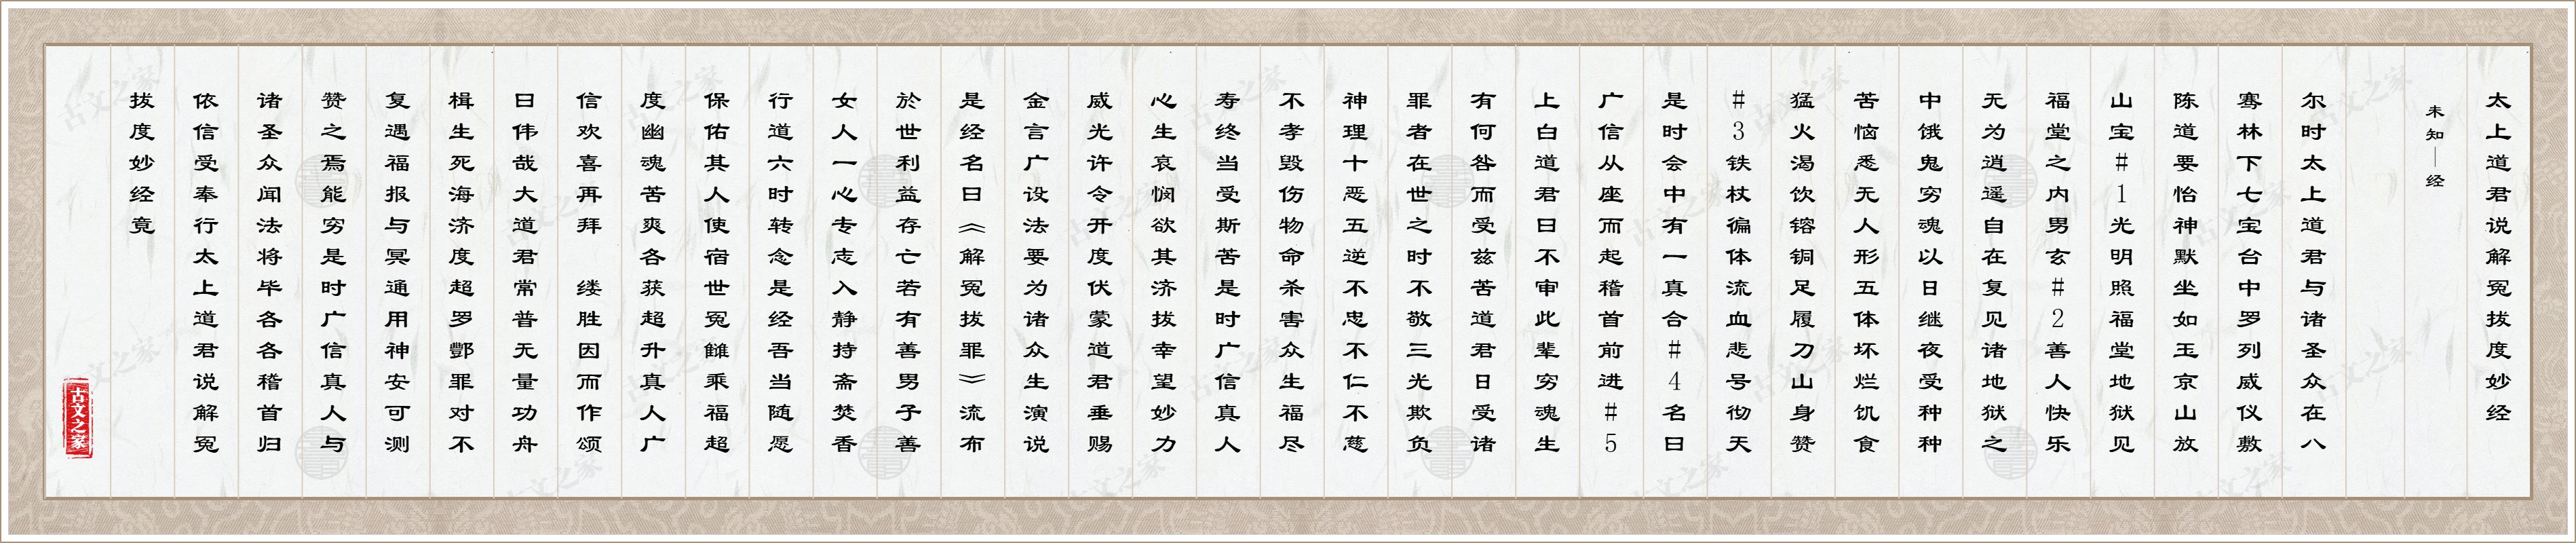 太上道君说解冤拔度妙经
未知｜经
尔时太上道君与诸圣众在八
骞林下七宝台中罗列威仪敷
陈道要怡神默坐如玉京山放
山宝#1光明照福堂地狱见
福堂之内男玄#2善人快乐
无为逍遥自在复见诸地狱之
中饿鬼穷魂以日继夜受种种
苦恼悉无人形五体坏烂饥食
猛火渴饮镕铜足履刀山身赞
#3铁杖徧体流血悲号彻天
是时会中有一真合#4名曰
广信从座而起稽首前进#5
上白道君曰不审此辈穷魂生
有何咎而受兹苦道君曰受诸
罪者在世之时不敬三光欺负
神理十恶五逆不忠不仁不慈
不孝毁伤物命杀害众生福尽
寿终当受斯苦是时广信真人
心生哀悯欲其济拔幸望妙力
威光许令开度伏蒙道君垂赐
金言广设法要为诸众生演说
是经名曰《解冤拔罪》流布
於世利益存亡若有善男子善
女人一心专志入静持斋焚香
行道六时转念是经吾当随愿
保佑其人使宿世冤雠乘福超
度幽魂苦爽各获超升真人广
信欢喜再拜　缕胜因而作颂
曰伟哉大道君常普无量功舟
楫生死海济度超罗酆罪对不
复遇福报与冥通用神安可测
赞之焉能穷是时广信真人与
诸圣众闻法将毕各各稽首归
依信受奉行太上道君说解冤
拔度妙经竟
古文之家